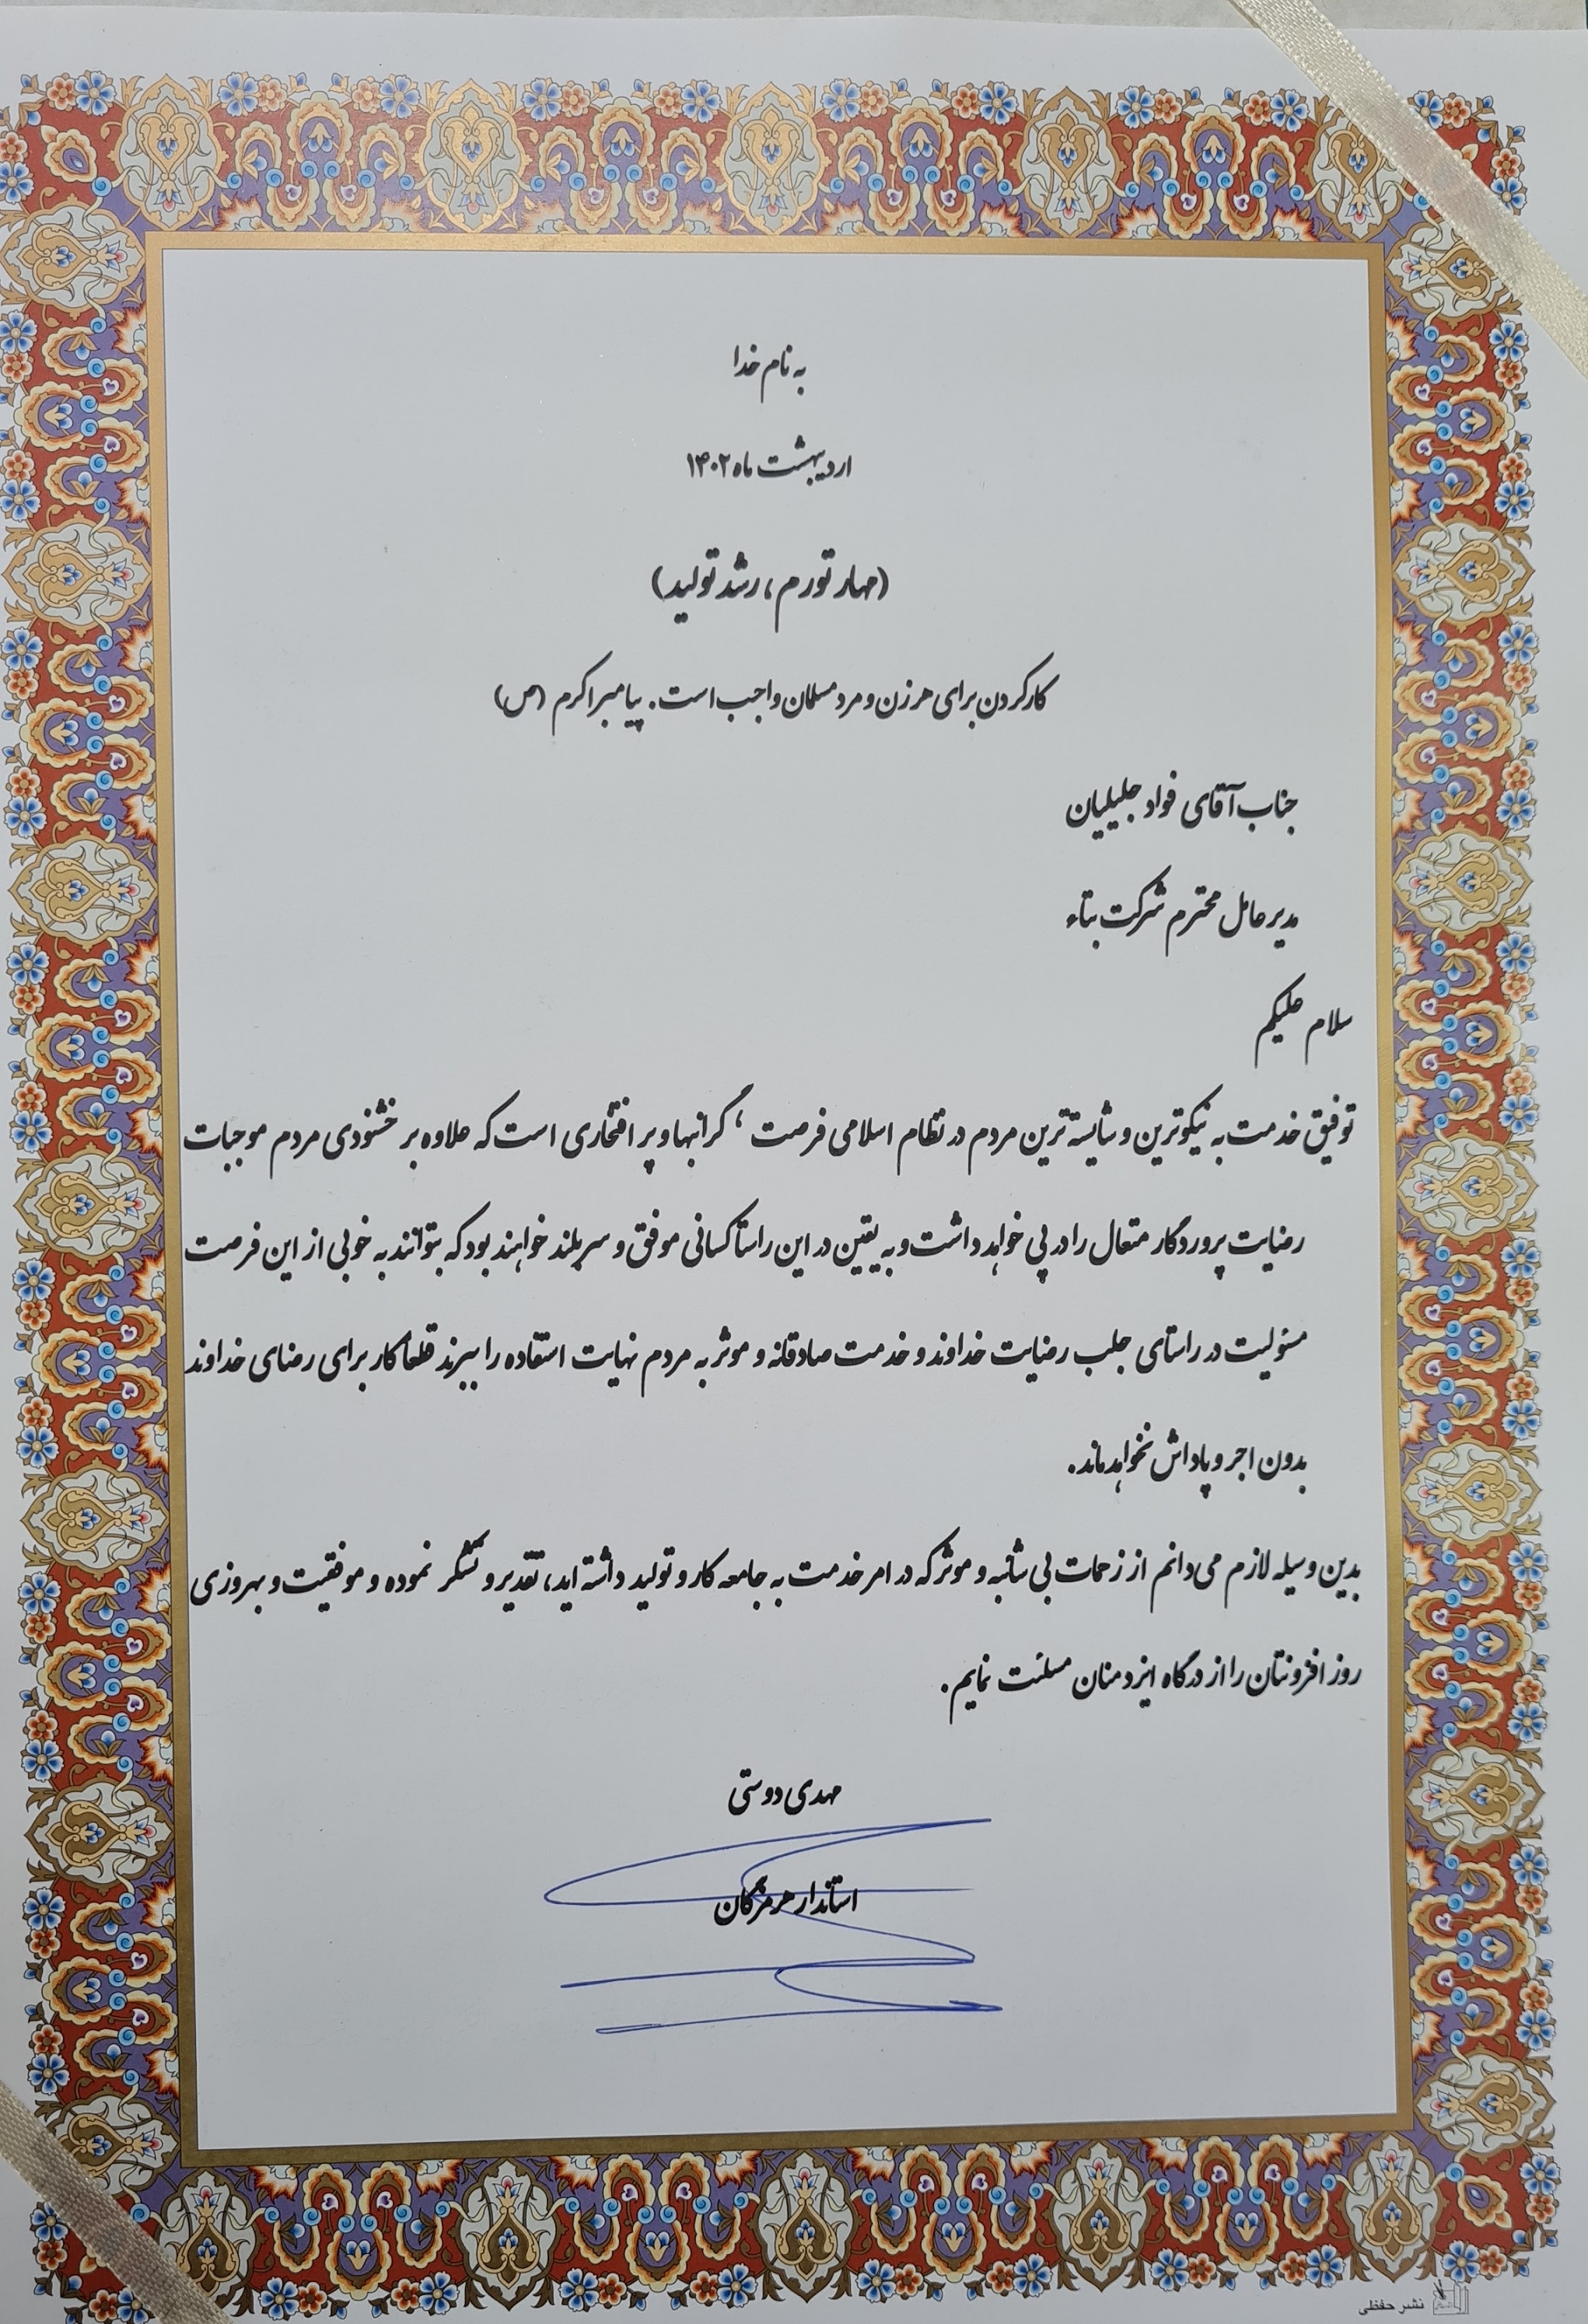 به نام خدا
اردیبهشت ماه ۱۴۰۲
(مهار تورم، رشد تولید)
کار کردن برای هر زن و مرد مسلمان واجب است. پیامبر اکرم (ص)
جناب آقای فواد جلیلیان
مدیر عامل محترم شرکت بتاء
سلام علیکم
توفیق خدمت به نیکوترین و شایسته ترین مردم در نظام اسلامی فرصت ، گرانبها و پر افتخاری است که علاوه بر خشنودی مردم موجبات
رضایت پروردگار متعال را در پی خواهد داشت و به یقین در این راستا کسانی موفق و سربلند خواهند بود که بتوانند به خوبی از این فرصت
مسئولیت در راستای جلب رضایت خداوند و خدمت صادقانه و موثر به مردم نهایت استفاده را ببرند قطعاً کار برای رضای خداوند
بدون اجر و پاداش نخواهد ماند.
بدین وسیله لازم می دانم از زحمات بی شائبه و موثر که در امر خدمت به جامعه کار و تولید داشته اید، تقدیر و تشکر نموده و موفقیت و بهروزی
روز افزونتان را از درگاه ایزد منان مسئلت نمایم.
مهدی دوستی
استاندار هرمزگان
نشر حفظی